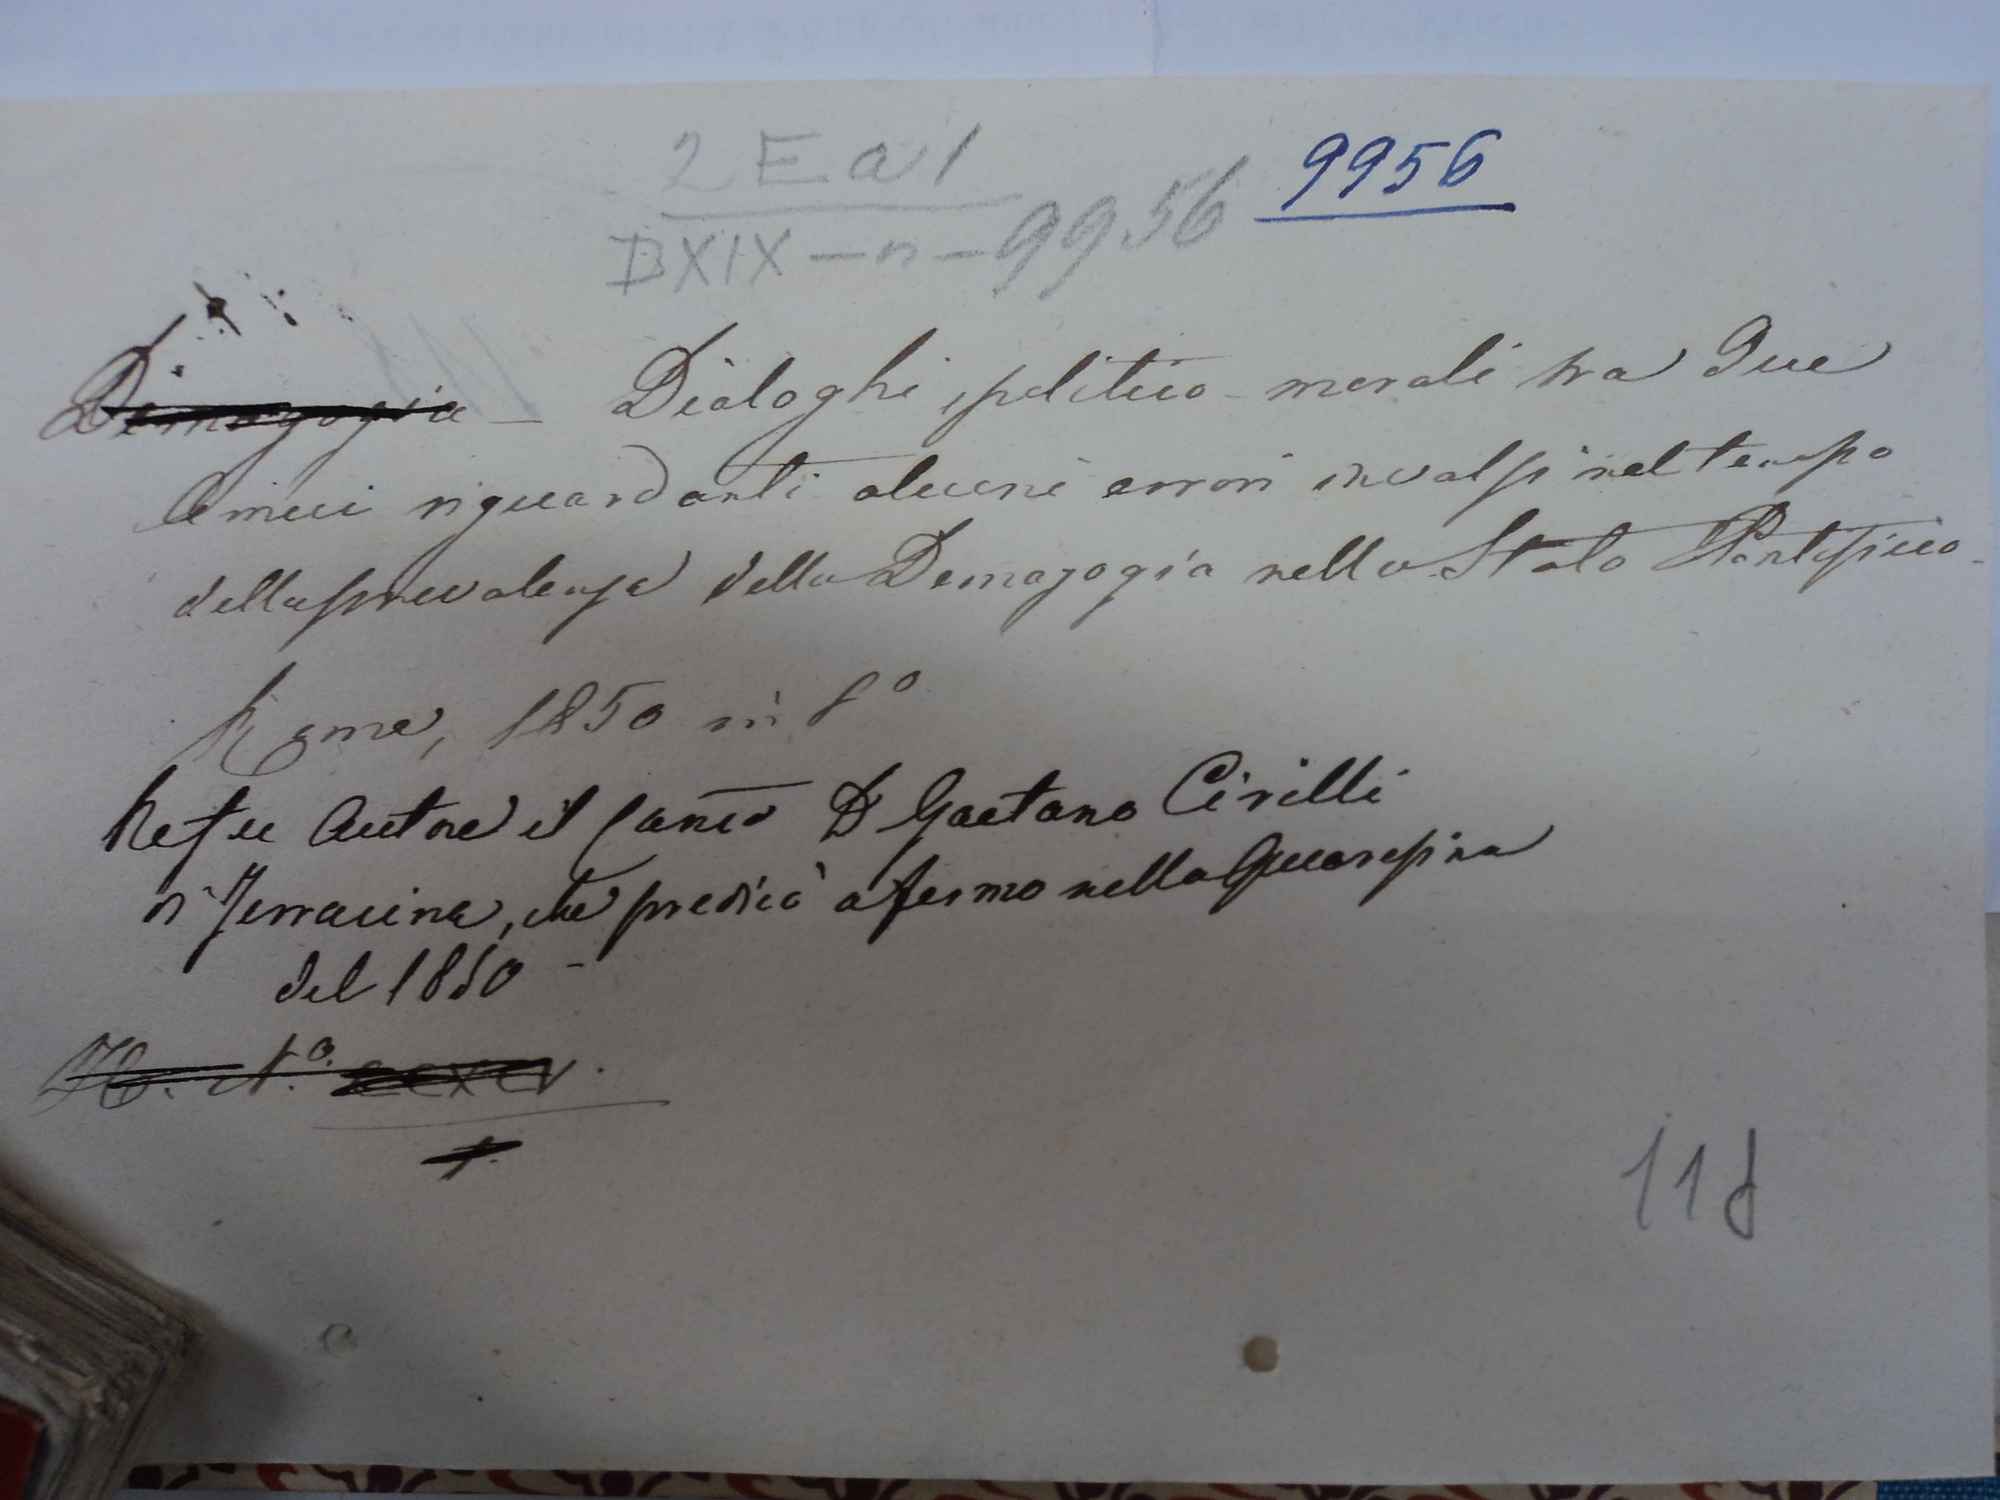 2 E a 1
9956
D XIX - n - 9956
Demagogia - Dialoghi politico-morali tra due
Amici riguardanti alcuni errori invalsi nel tempo
della prevalenza della Demagogia nello Stato Pontificio.
Roma, 1850 in 8º
Ne fu Autore il Canco D Gaetano Cirilli
di Terracina, che predicò a Fermo nella Quaresima
del 1850 -
H. Nº.
11